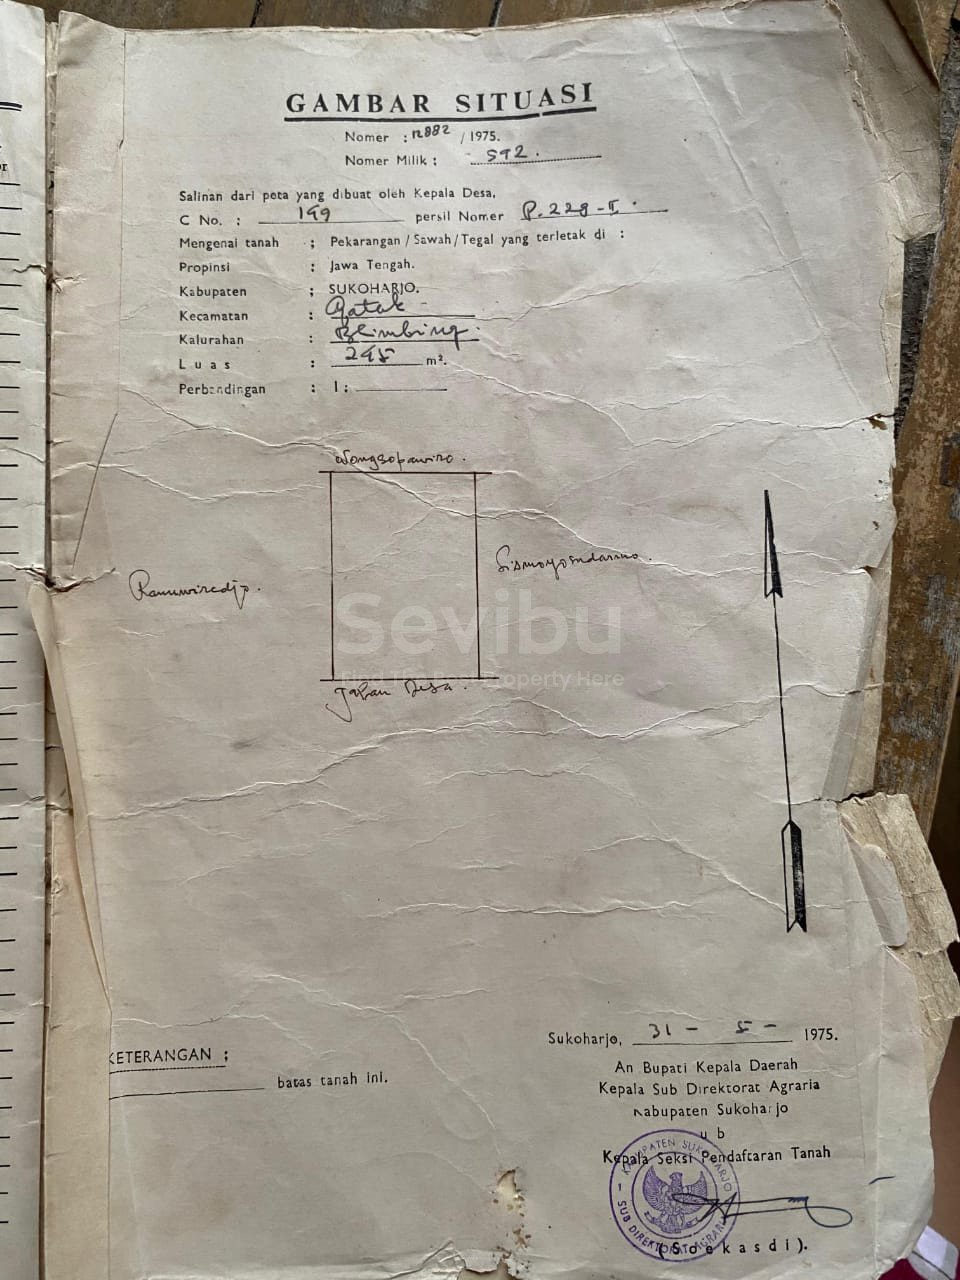 GAMBAR SITUASI
Nomer : 12882 / 1975.
Nomer Milik : 592.
Salinan dari peta yang dibuat oleh Kepala Desa,
C No. : 149 persil Nomer P. 228-II.
Mengenai tanah : Pekarangan / Sawah / Tegal yang terletak di :
Propinsi : Jawa Tengah.
Kabupaten : SUKOHARJO.
Kecamatan : Gatak -
Kalurahan : Blimbing.
Luas : 245 m².
Perbandingan : 1 :
Wongsopawiro.
Sismoyosudarmo.
Ranuwiredjo.
Sevibu
Find The Best Property Here
Jalan Desa.
Sukoharjo, 31 - 5 - 1975.
KETERANGAN ;
An Bupati Kepala Daerah
batas tanah ini.
Kepala Sub Direktorat Agraria
Kabupaten Sukoharjo
u b
Kepala Seksi Pendaftaran Tanah
KABUPATEN SUKOHARJO
SUB DIREKTORAT AGRARIA
(Soekasdi).